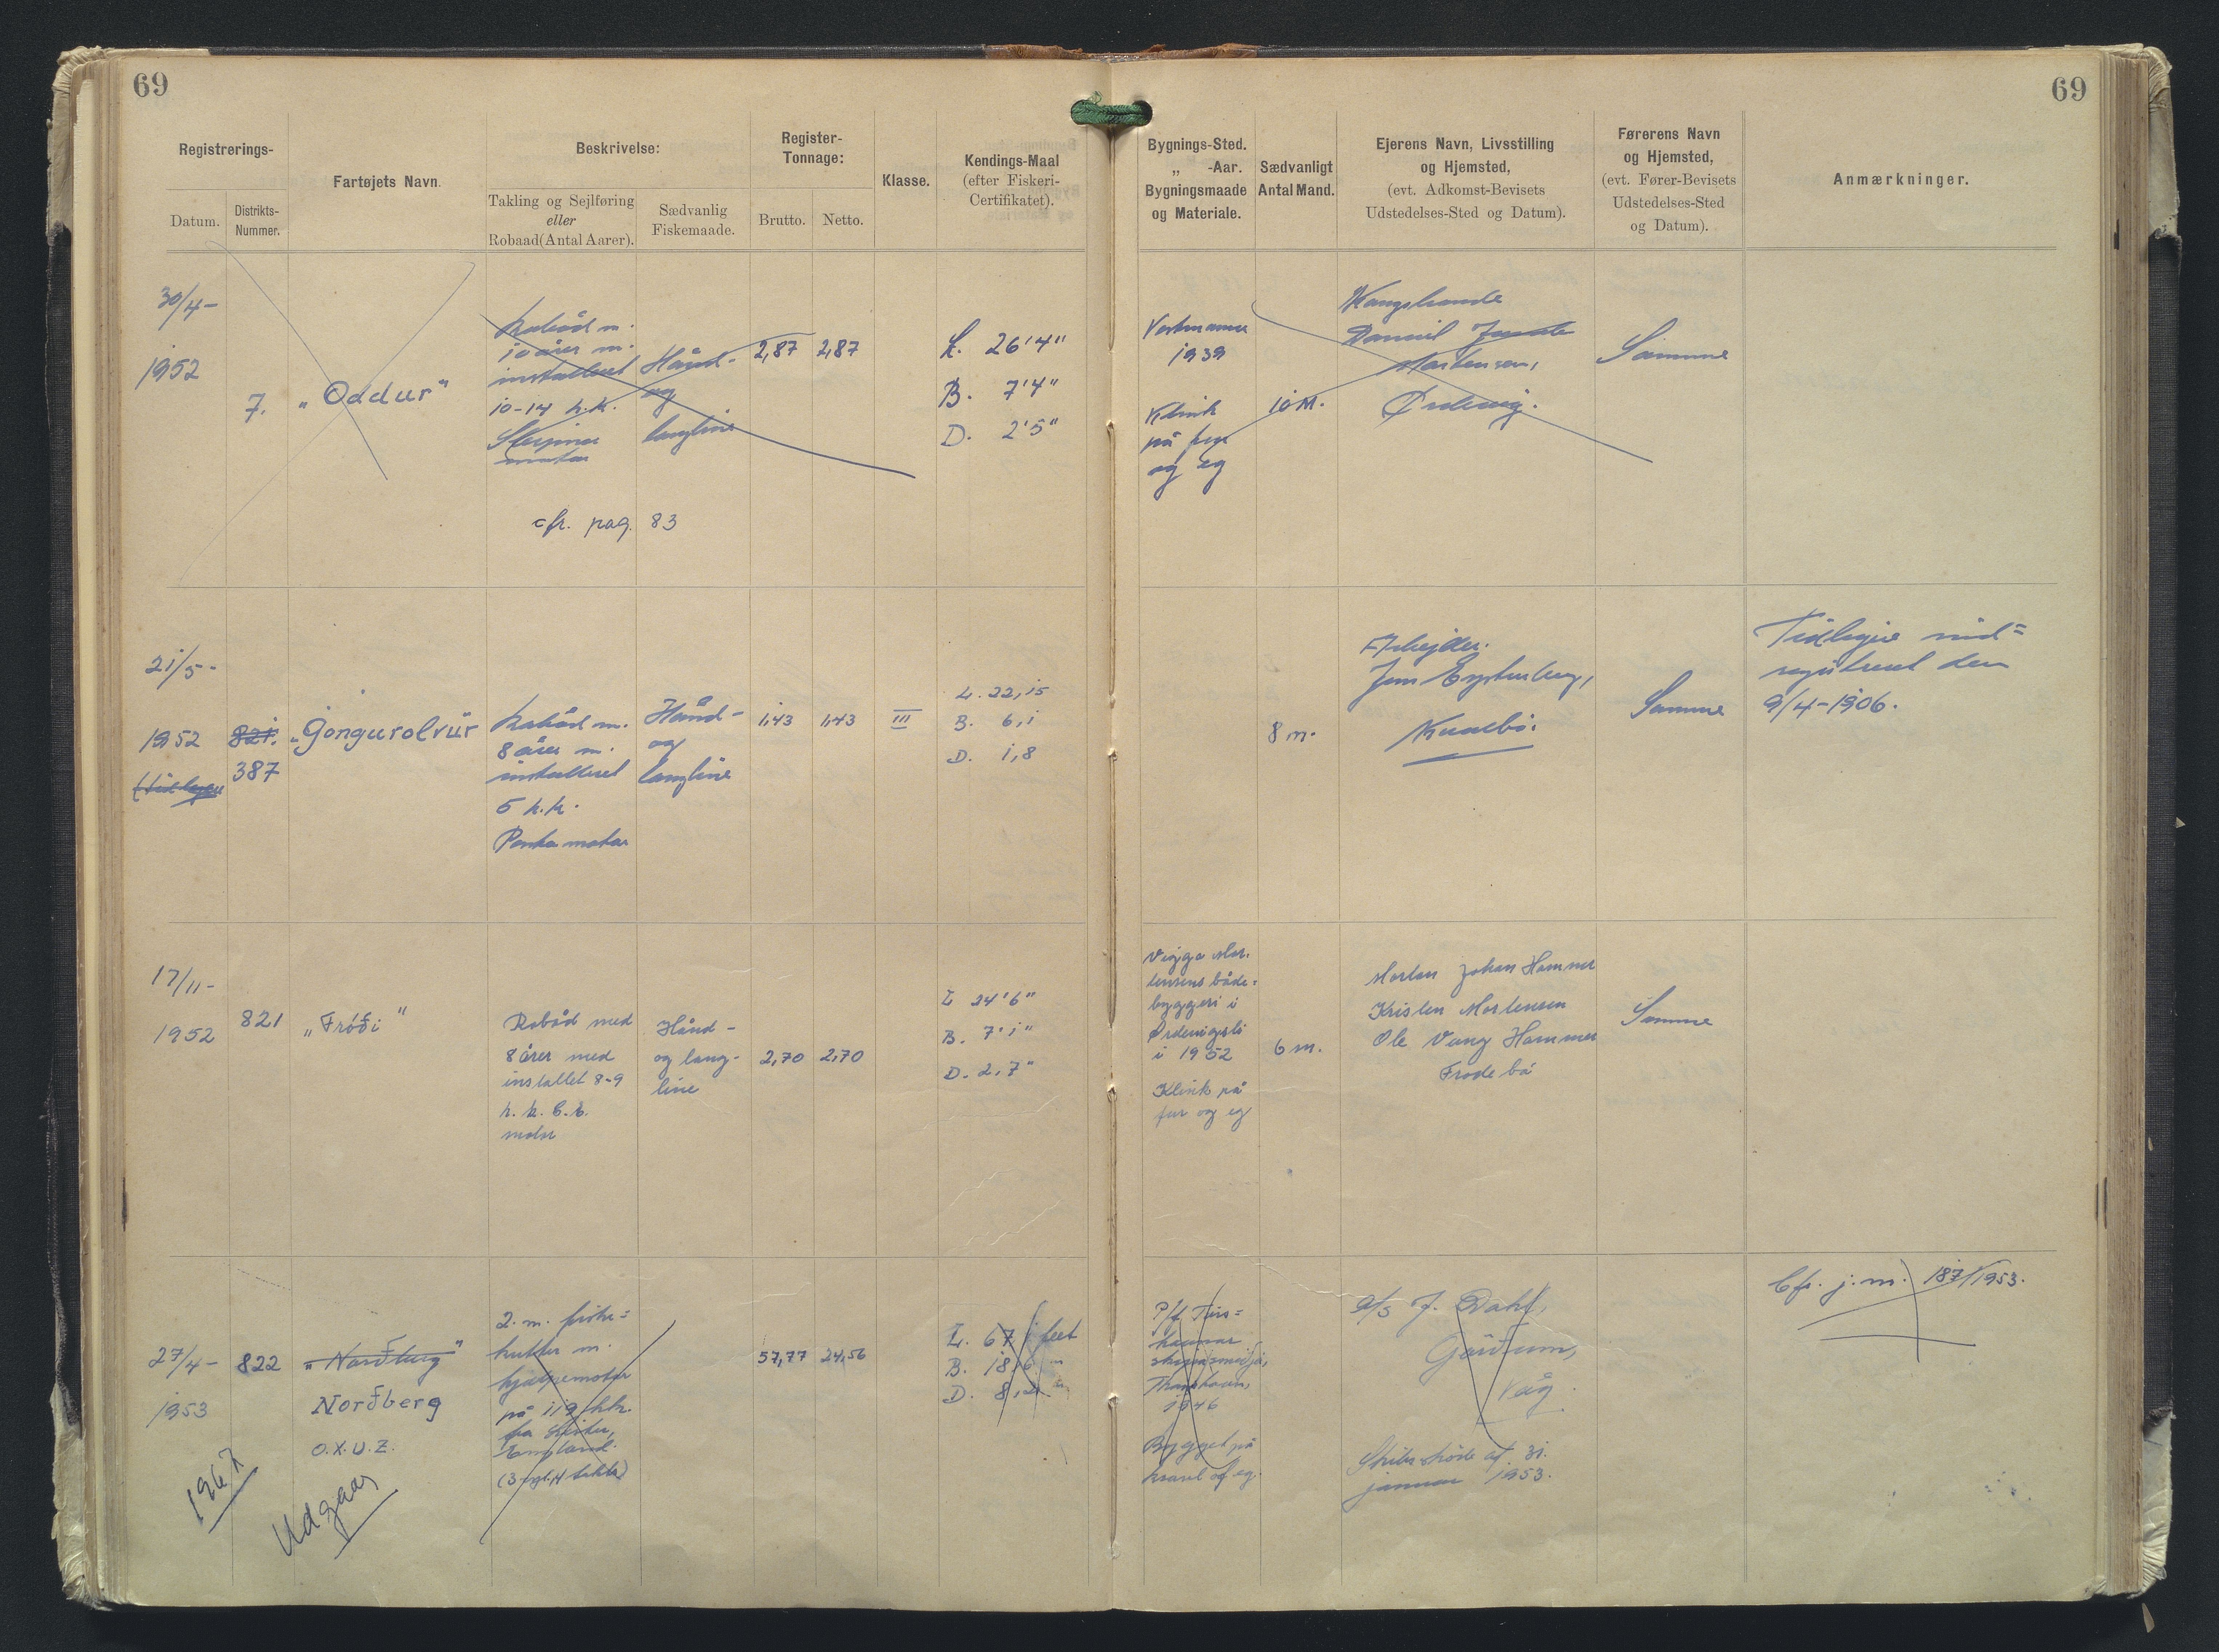 69
69
Registrerings-
Datum.
Distrikts-
Nummer.
Fartøjets Navn.
Beskrivelse:
Takling og Sejlføring
eller
Robaad (Antal Aarer).
Sædvanlig
Fiskemaade.
Register-
Tonnage:
Brutto.
Netto.
Klasse.
Kendings-Maal
(efter Fiskeri-
Certifikatet).
Bygnings-Sted.
„ -Aar.
Bygningsmaade
og Materiale.
Sædvanligt
Antal Mand.
Ejerens Navn, Livsstilling
og Hjemsted,
(evt. Adkomst-Bevisets
Udstedelses-Sted og Datum).
Førerens Navn
og Hjemsted,
(evt. Fører-Bevisets
Udstedelses-Sted
og Datum).
Anmærkninger.
30/4-
1952
7.
„Oddur"
Robåd m.
10 årer m.
installeret
10-14 h.k.
motor
Hånd-
og
langline
2,87
2,87
L. 26'4"
B. 7'4"
D. 2'5"
1939
Klink
på fyr
og eg
10 M.
Daniel
Mortensen,
Samme
cfr. pag. 83
21/5-
1952
(tidligere
821.
387
„Gongurolvur
Robåd m.
8 årer m.
installeret
5 h.k.
Penta motor
Hånd-
og
langline
1,43
1,43
III
L. 22,15
B. 6,1
D. 1,8
8 m.
Arbejder.
Kvalbø.
Samme
Tidligere ind=
registreret den
9/4-1906.
17/11-
1952
821
„Fróði"
Robåd med
8 årer med
installet 8-9
h.k.
motor
Hånd-
og lang-
line
2,70
2,70
L 24'6"
B. 7'1"
D. 2,7"
Viggo Mor.
tensens både-
byggeri i
i 1952
Klink på
fur og eg
6 m.
Morten Johan Hammer
Kristen Mortensen
Ole Vang Hammer
Frodebø
Samme
27/4-
1953
822
„Norðberg"
Norðberg
O.X.U.Z.
1967
Udgaar
2. m. fiske=
kutter m.
hjælpemotor
på 119 hk.
fra Lister,
England.
57,77
24,56
L. 67,1 feet
B. 18,6 "
D. 8,2 "
P/f Tórs=
havnar
skipasmiðja,
Thorshavn,
1946
Bygget på
kravel af eg.
A/S J. Dahl,
Våg.
Skibsskøde af 31.
januar 1953.
Cfr. j.m. 187/1953.